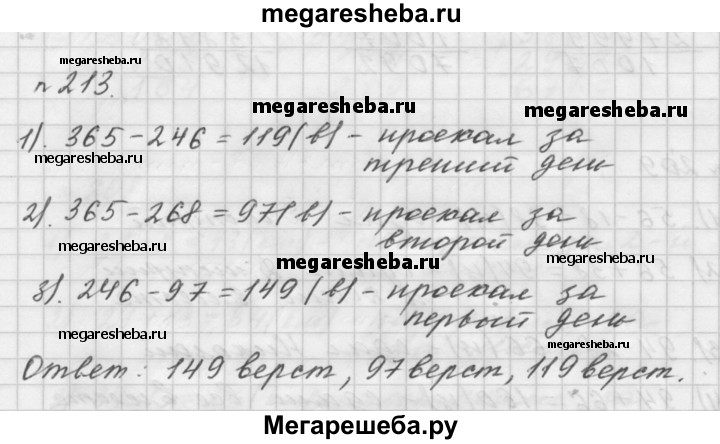 megaresheba.ru
megaresheba.ru
№ 213.
megaresheba.ru
megaresheba.ru
1). 365 - 246 = 119 (в) - проехал за
megaresheba.ru
третий день
2). 365 - 268 = 97 (в) - проехал за
второй день
megaresheba.ru
megaresheba.ru
megaresheba.ru
3). 246 - 97 = 149 (в) - проехал за
первый день
megaresheba.ru
Ответ: 149 верст, 97 верст, 119 верст.
Мегарешеба.ру